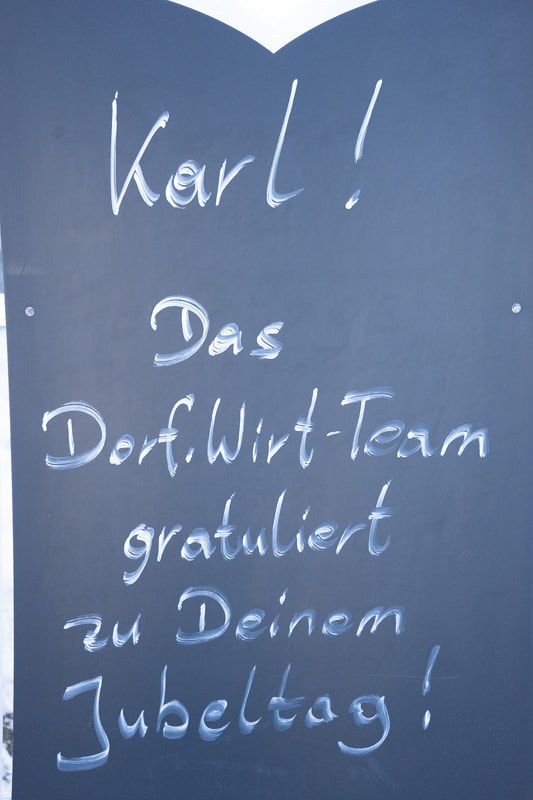 Karl!
Das
Dorf.Wirt-Team
gratuliert
zu Deinem
Jubeltag!